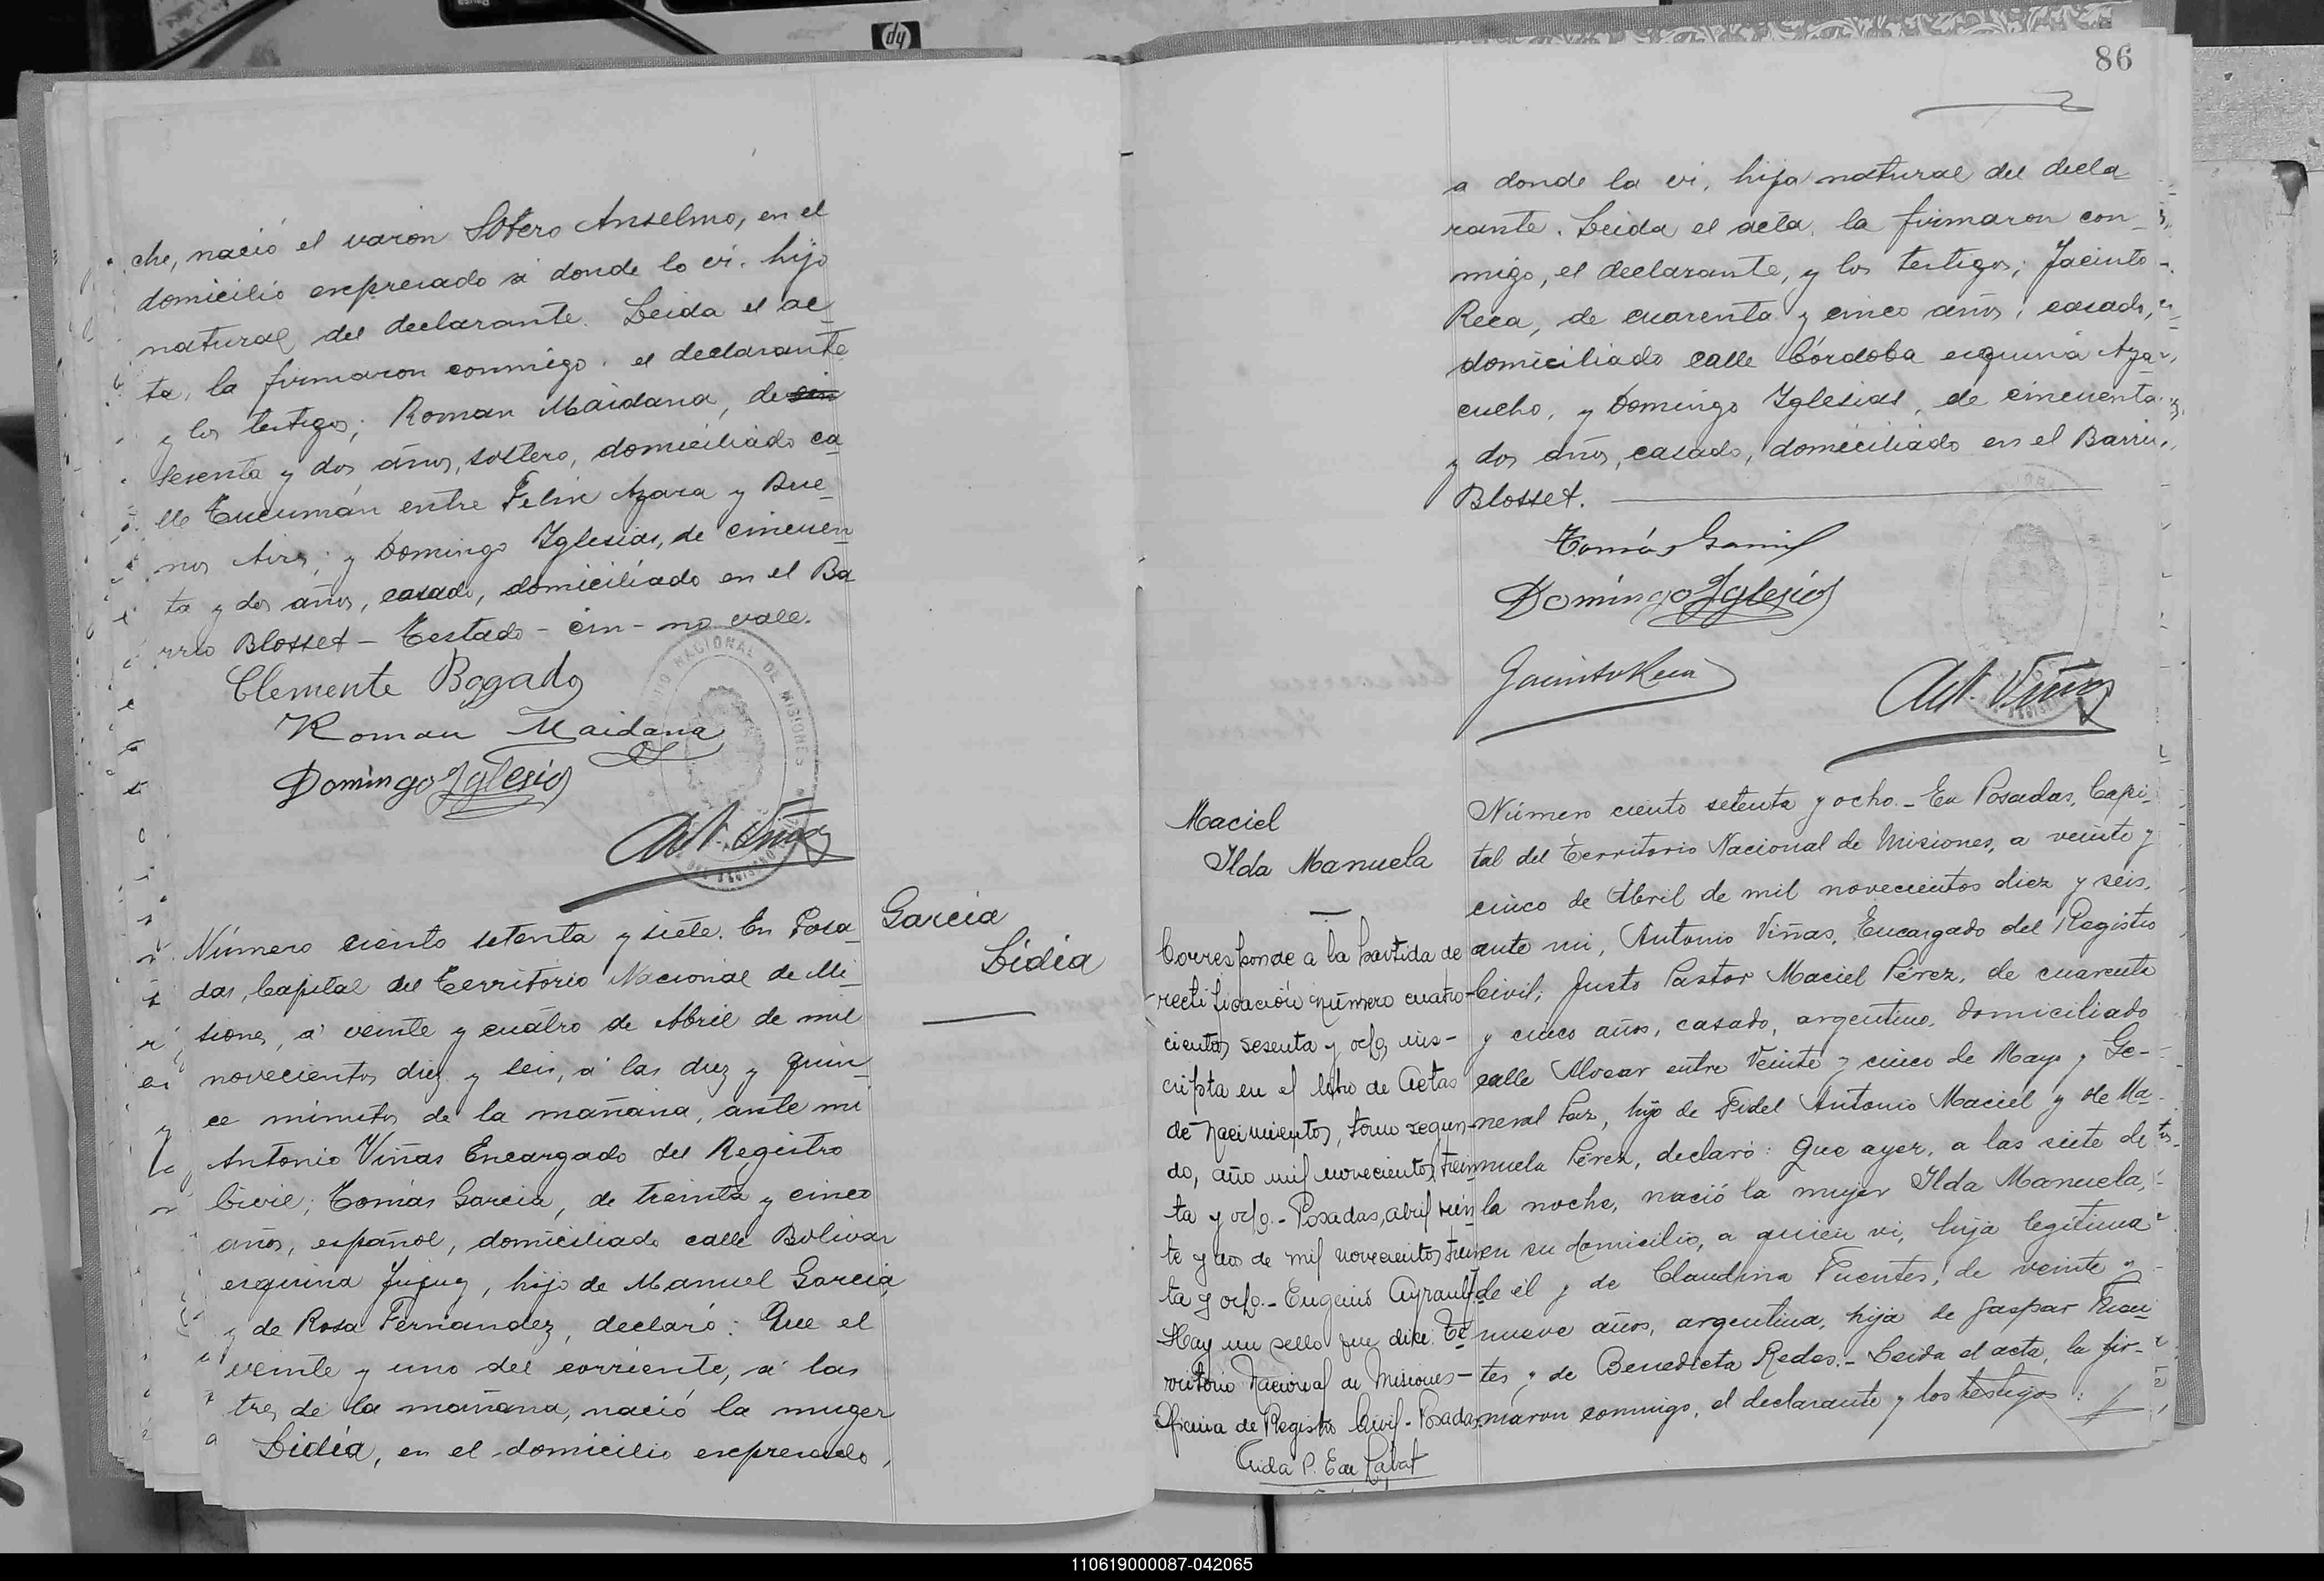 che, nació el varon Sotero Anselmo, en el
domicilio expresado a donde lo vi. hijo
natural del declarante. Leida el ac_
ta, la firmaron conmigo. el declarante
y los testigos; Roman Maidana, de cin
sesenta y dos años, soltero, domiciliado ca
lle Tucumán entre Felix Azara y Bue_
nos Aires; y Domingo Iglesias, de cincuen_
ta y dos años, casado, domiciliado en el Ba_
rrio Blosset – Testado – cin – no vale.
Clemente Bogado
Roman Maidana
Domingo Iglesias
NACIONAL DE MISIONES
Ant. Viñas
García
Lidia
Número ciento setenta y siete. En Posa_
das, Capital del Territorio Nacional de Mi_
siones, a veinte y cuatro de Abril de mil
novecientos diez y seis, a las diez y quin_
ce minutos de la mañana, ante mi
Antonio Viñas Encargado del Registro
Civil; Tomás García, de treinta y cinco
años, español, domiciliado calle Bolivar
esquina Jujuy, hijo de Manuel García
y de Rosa Fernandez, declaró: Que el
veinte y uno del corriente, a las
tres de la mañana, nació la muger
Lidia, en el domicilio expresado,
86
a donde la vi, hija natural del decla_
rante. Leida el acta, la firmaron con_
migo, el declarante, y los testigos; Jacinto
Reca, de cuarenta y cinco años, casado,
domiciliado calle Córdoba esquina Aya_
cucho, y Domingo Iglesias, de cincuenta
y dos años, casado, domiciliado en el Barrio
Blosset.
Tomás Garcia
Domingo Iglesias
Jacinto Reca
Ant. Viñas
Maciel
Ilda Manuela
Corresponde a la partida de
rectificación número cuatro-
cientos sesenta y ocho ins-
cripta en el libro de Actas
de Nacimientos, tomo segun-
do, año mil novecientos trein
ta y ocho.- Posadas, abril vein
te y dos de mil novecientos trein
ta y ocho.- Eugenio Ayrault
Hay un sello que dice: Te
rritorio Nacional de Misiones-
Oficina de Registro Civil-Posadas
Número ciento setenta y ocho._ En Posadas, Capi_
tal del Territorio Nacional de Misiones, a veinte y
cinco de Abril de mil novecientos diez y seis,
ante mi, Antonio Viñas, Encargado del Registro
Civil; Justo Pastor Maciel Pérez, de cuarenta
y cinco años, casado, argentino, domiciliado
calle Alvear entre Veinte y cinco de Mayo y Ge-
neral Paz, hijo de Fidel Antonio Maciel y de Ma_
nuela Pérez, declaró: Que ayer, a las siete de
la noche, nació la mujer Ilda Manuela,
en su domicilio, a quien vi, hija legítima
de él y de Claudina Fuentes, de veinte y
nueve años, argentina, hija de Gaspar Fuen
tes y de Benedicta Redes.- Leida el acta, la fir-
maron conmigo, el declarante y los testigos:
110619000087-042065